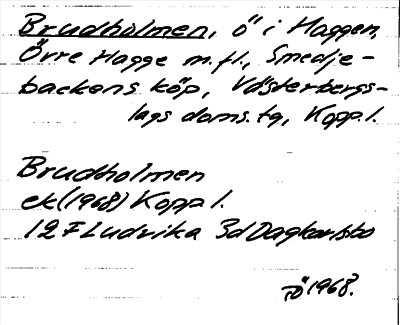 Brudholmen, ö i Haggen,
Örre Hagge m.fl., Smedje-
backens köp, Västerbergs-
lags doms.tg, Kopp.l.
Brudholmen
ek(1968) Kopp l.
12 F Ludvika 3d Dagkarlsbo
1968.